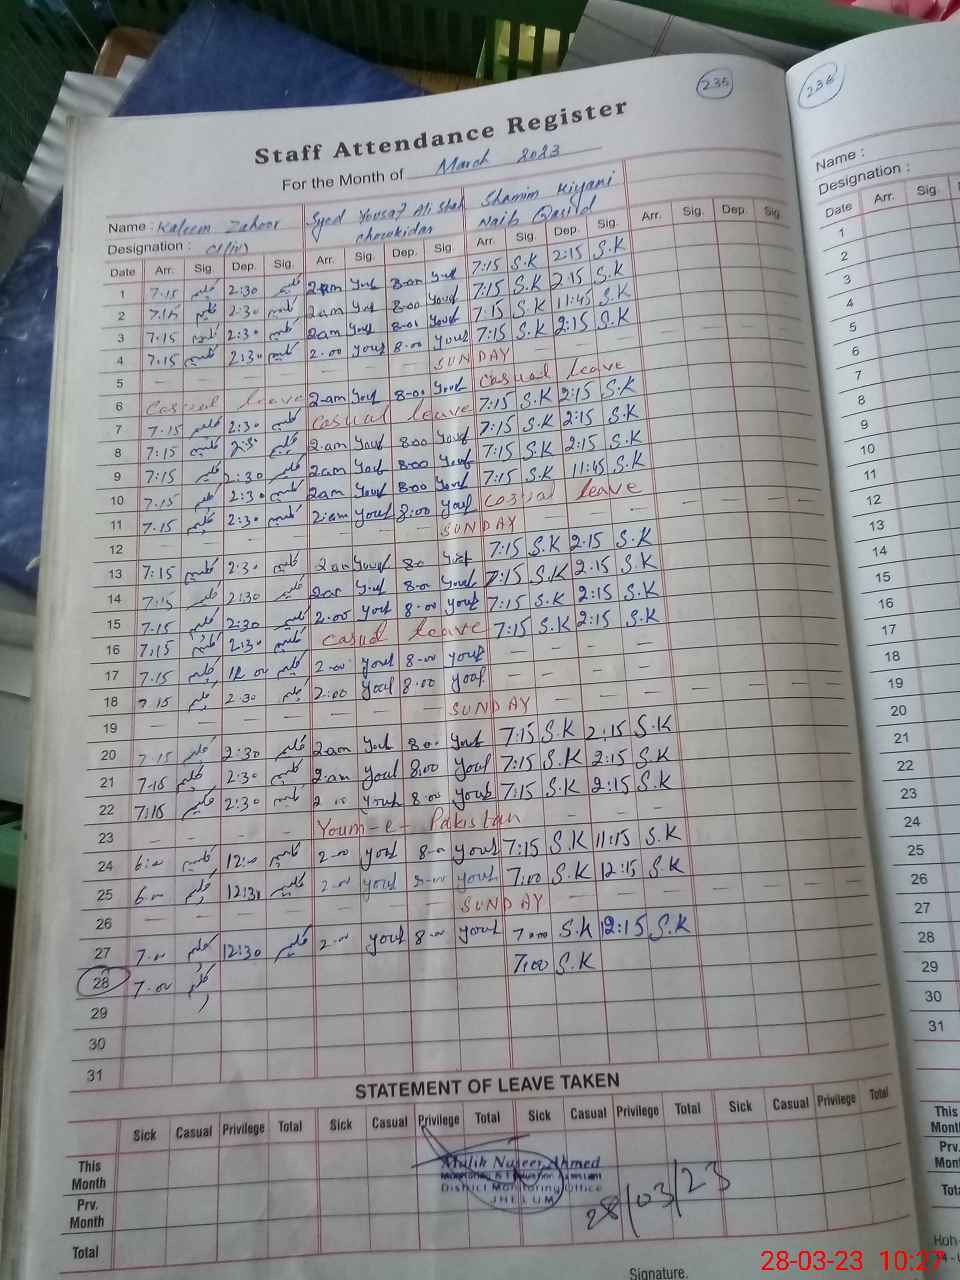 235
236
Staff Attendance Register
For the Month of March 2023
Name : Kaleem Zahoor Syed Yousaf Ali Shah Shamim Kiyani
Designation : chowkidar Naib Qasid
Date Arr. Sig. Dep. Sig. Arr. Sig. Dep. Sig. Arr. Sig. Dep. Sig. Arr. Sig. Dep. Sig.
1 7.15 کلیم 2:30 کلیم 2am Yousf 8.00 Yousf 7:15 S.K 2:15 S.K
2 7.15 کلیم 2:30 کلیم 2am Yousf 8.00 Yousf 7:15 S.K 2:15 S.K
3 7.15 کلیم 2:30 کلیم 2am Yousf 8.00 Yousf 7:15 S.K 11:45 S.K
4 7.15 کلیم 2:30 کلیم 2.00 Yousf 8.00 Yousf 7:15 S.K 2:15 S.K
5 — — — — SUNDAY — — —
6 Casual leave 2.am Yousf 8.00 Yousf Casual leave
7 7.15 کلیم 2:30 کلیم Casual leave 7:15 S.K 2:15 S.K
8 7:15 کلیم 2:30 کلیم 2.am Yousf 8.00 Yousf 7:15 S.K 2:15 S.K
9 7:15 کلیم 2:30 کلیم 2am Yousf 8.00 Yousf 7:15 S.K 2:15 S.K
10 7.15 کلیم 2:30 کلیم 2am Yousf 8.00 Yousf 7:15 S.K 11:45 S.K
11 7.15 کلیم 2:30 کلیم 2:am Yousf 8:00 Yousf Casual leave
12 — — — — — — — SUNDAY — — —
13 7:15 کلیم 2:30 کلیم 2am Yousf 8.0 Yousf 7:15 S.K 2:15 S.K
14 7:15 کلیم 2:30 کلیم Yousf 8.00 Yousf 7:15 S.K 2:15 S.K
15 7.15 کلیم 2:30 کلیم 2.00 Yousf 8.00 Yousf 7:15 S.K 2:15 S.K
16 7.15 کلیم 2:30 کلیم Casual leave 7:15 S.K 2:15 S.K
17 7.15 کلیم 12.00 کلیم 2.00 Yousf 8.00 Yousf — — — —
18 7.15 کلیم 2.30 کلیم 2:00 Yousf 8.00 Yousf — — — —
19 — — — — — — — SUNDAY — — —
20 7.15 کلیم 2:30 کلیم 2am Yousf 8.00 Yousf 7:15 S.K 2:15 S.K
21 7.15 کلیم 2:30 کلیم 2.am Yousf 8.00 Yousf 7:15 S.K 2:15 S.K
22 7:15 کلیم 2:30 کلیم 2.00 Yousf 8.00 Yousf 7:15 S.K 2:15 S.K
23 — — — — Youm-e-Pakistan — — —
24 6:00 کلیم 12:00 کلیم 2.00 Yousf 8.00 Yousf 7:15 S.K 11:15 S.K
25 6.00 کلیم 12:30 کلیم 2.00 Yousf 8.00 Yousf 7:00 S.K 12:15 S.K
26 — — — — — — — SUNDAY — — —
27 7.00 کلیم 12:30 کلیم 2.00 Yousf 8.00 Yousf 7.00 S.K 12:15 S.K
28 7.00 کلیم 7:00 S.K
29
30
31
STATEMENT OF LEAVE TAKEN
Sick Casual Privilege Total Sick Casual Privilege Total Sick Casual Privilege Total Sick Casual Privilege Total
This Month
Prv. Month
Total
Malik Naseer Ahmed
Monitoring & Evaluation Assistant
District Monitoring Office
JHELUM
28/03/23
Signature.
Name :
Designation :
Date Arr. Sig.
1
2
3
4
5
6
7
8
9
10
11
12
13
14
15
16
17
18
19
20
21
22
23
24
25
26
27
28
29
30
31
This
Prv.
28-03-23 10:27